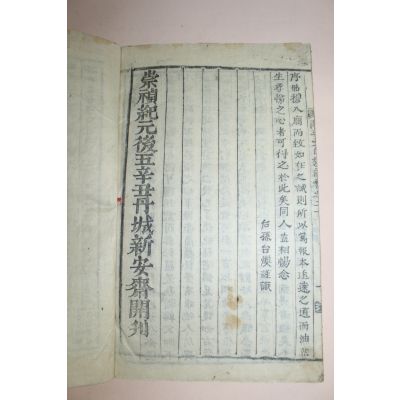 序昭穆入廟而致如在之誠則所以篤報本追遠之道而油然
生孝悌之心者可得之於此矣同人盍相勗念
后孫台漢謹識
崇禎紀元後五辛丑丹城新安齋開刋